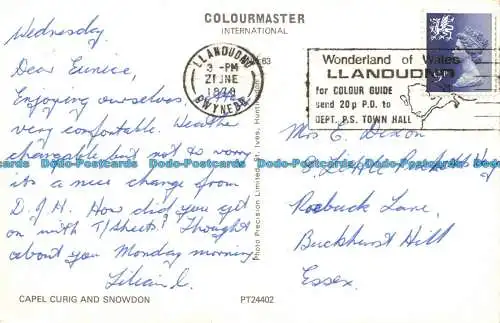 COLOURMASTER
INTERNATIONAL
Wednesday.
Dear Eunice,
Enjoying ourselves,
very comfortable. Weathe
changeable but not to worry
its a nice change from
D.J.H. How did you get
on with T/Sheets? Thought
about you Monday morning
Lilian
LLANDUDNO
3-PM
21 JNE
GWYNEDD
Wonderland of Wales
LLANDUDNO
for COLOUR GUIDE
send 20p P.O. to
DEPT. P.S. TOWN HALL
Mrs E. Dixon
5 Little
Roebuck Lane,
Buckhurst Hill
Essex.
Photo Precision Limited, St. Ives, Hunt
CAPEL CURIG AND SNOWDON
PT24402
Dodo-Postcards Dodo-Postcards Dodo-Postcards Dodo-Postcards